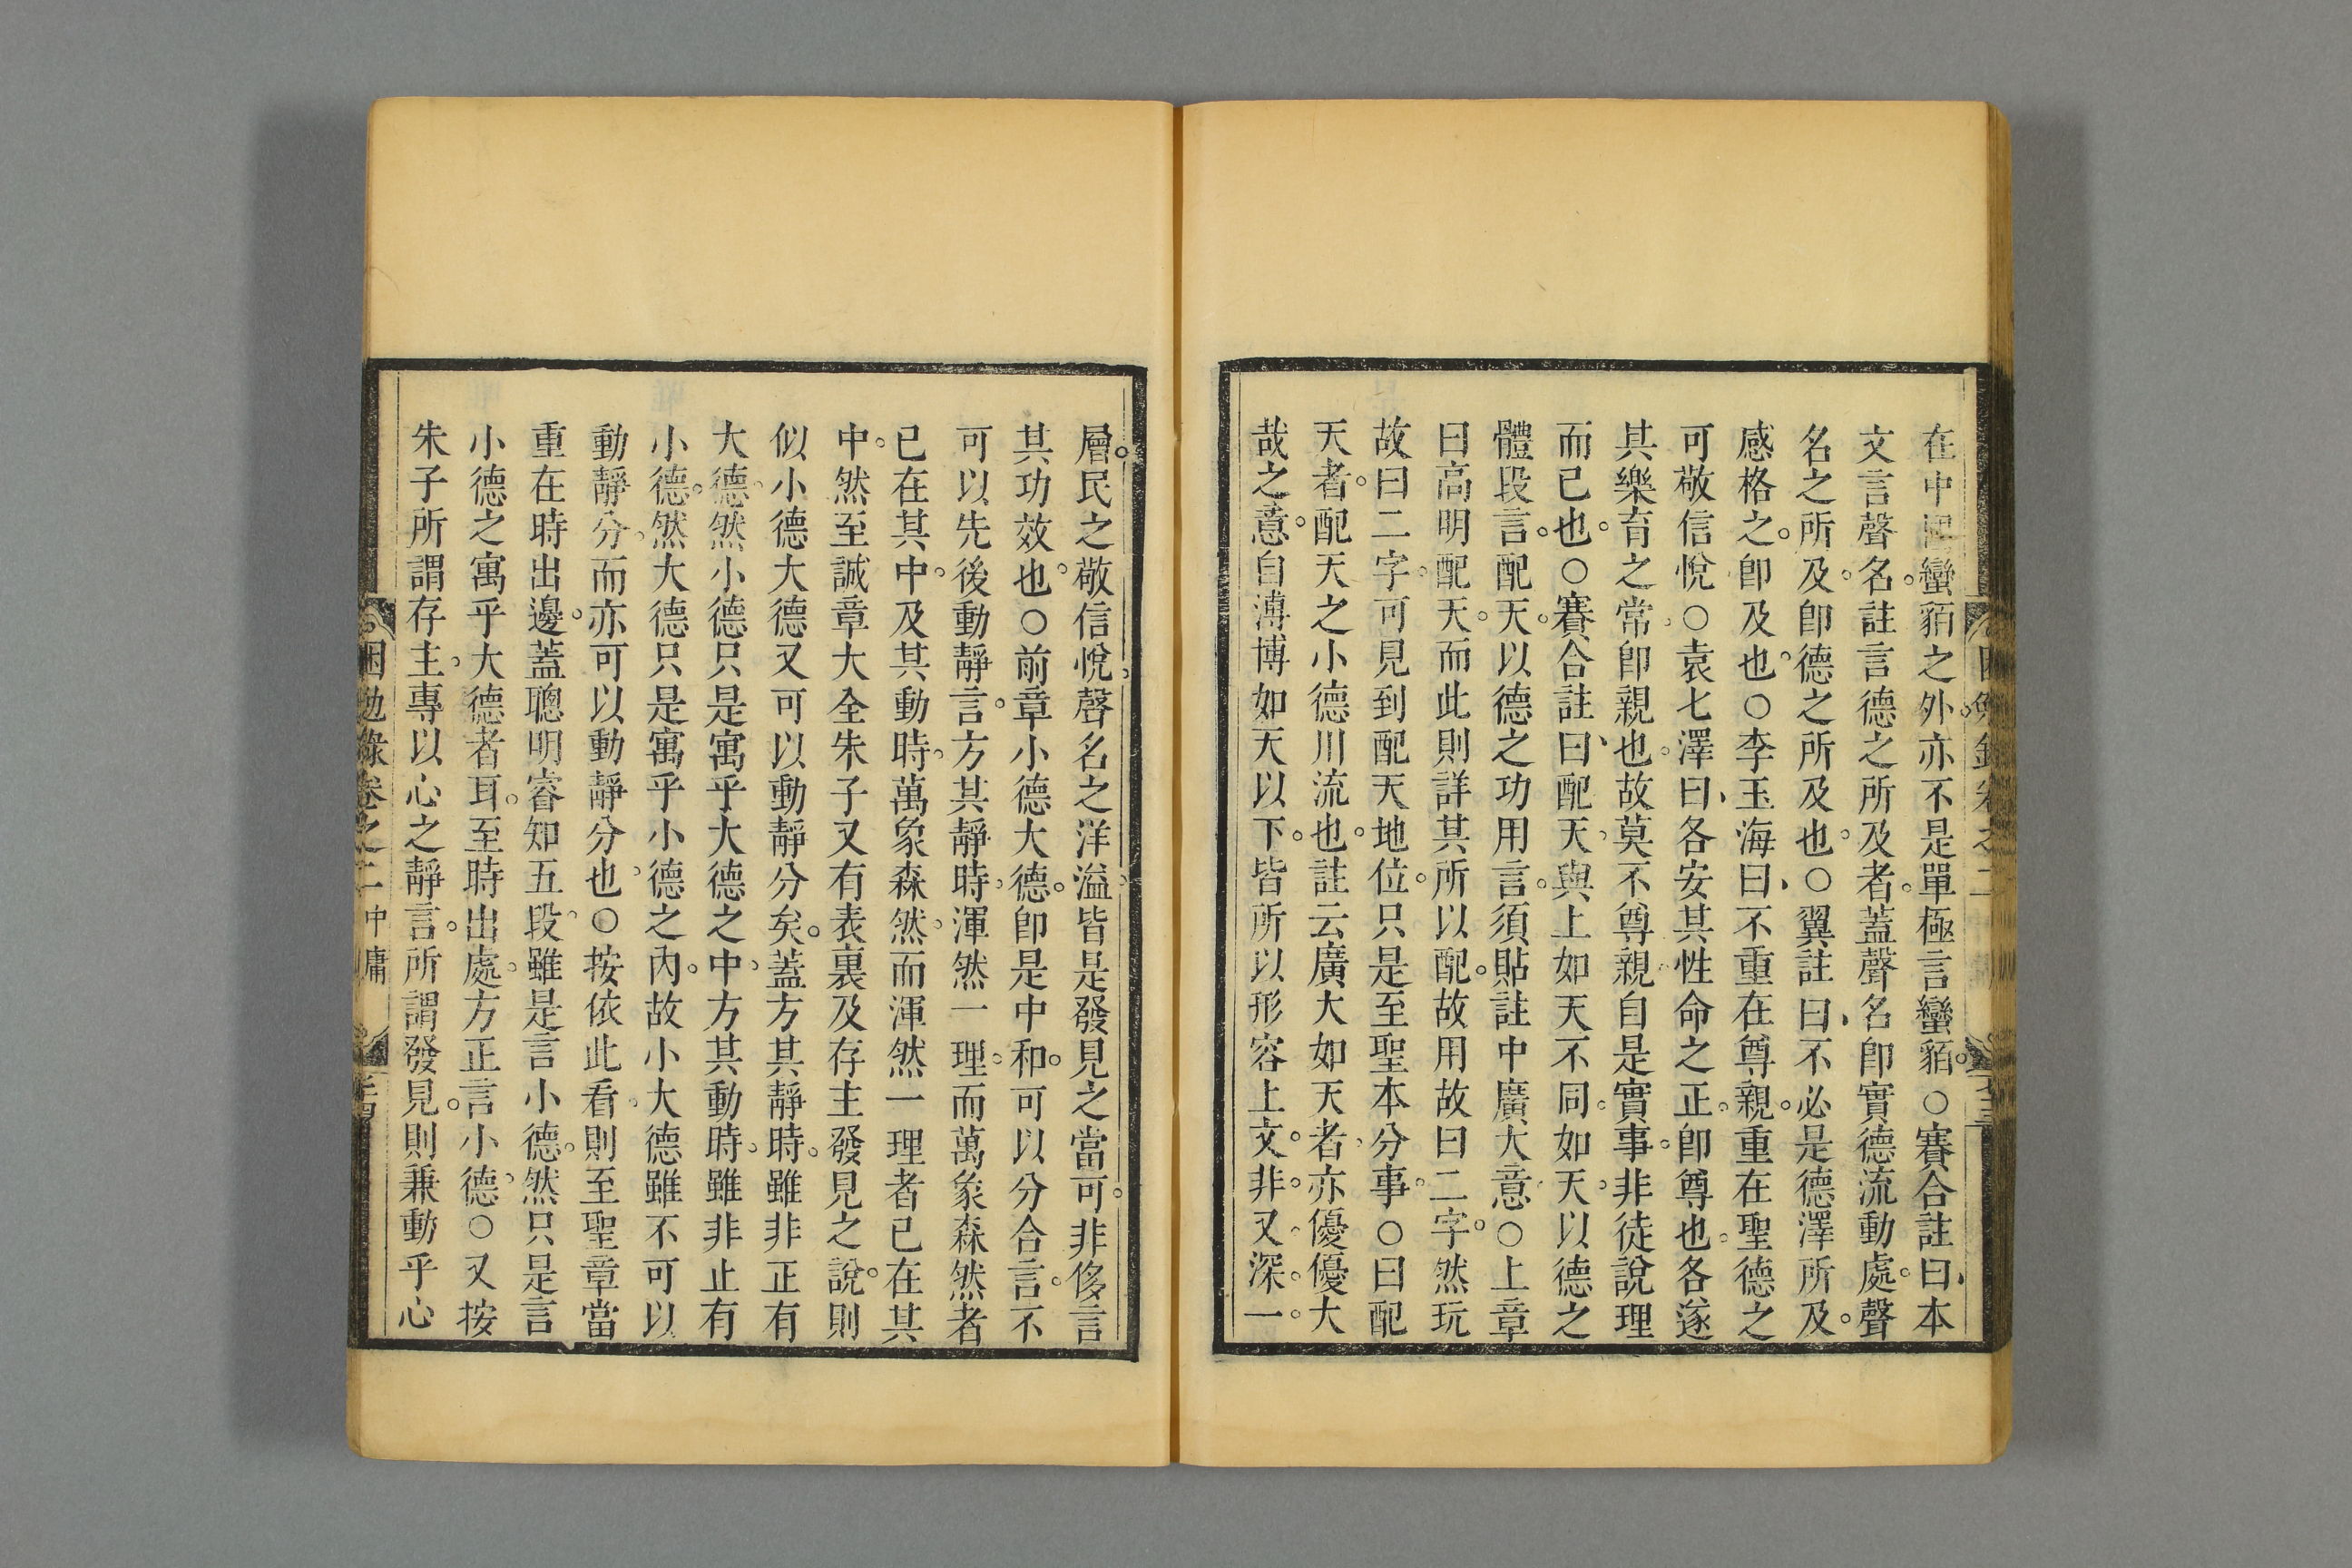 在中國蠻貊之外。亦不是單極言蠻貊。○賽合註曰、本
文言聲名。註言德之所及者。蓋聲名卽實德流動處。聲
名之所及。卽德之所及也。○翼註曰、不必是德澤所及。
感格之。卽及也。○李玉海曰、不重在尊親。重在聖德之
可敬信悅○袁七澤曰、各安其性命之正。卽尊也。各遂
其樂育之常。卽親也。故莫不尊親。自是實事。非徒說理
而已也。○賽合註曰、配天。與上如天不同。如天。以德之
體段言。配天。以德之功用言。須貼註中廣大意。○上章
曰高明配天。而此則詳其所以配。故用故曰二字。然玩
故曰二字。可見到配天地位。只是至聖本分事。○曰配
天者。配天之小德川流也。註云廣大如天者。亦優優大
哉之意。自溥博如天以下。皆所以形容上文。非。又。深。一。
層。民之敬信悅。聲名之洋溢。皆是發見之當可。非侈言
其功效也。○前章小德大德。卽是中和。可以分合言。不
可以先後動靜言。方其靜時。渾然一理。而萬象森然者
已在其中。及其動時。萬象森然。而渾然一理者已在其
中。然至誠章大全朱子又有表裏及存主發見之說。則
似小德大德又可以動靜分矣。蓋方其靜時。雖非正有
大德。然小德只是寓乎大德之中。方其動時。雖非止有
小德。然大德只是寓乎小德之內。故小大德雖不可以
動靜分。而亦可以動靜分也。○按依此看。則至聖章當
重在時出邊。蓋聰明睿知五段。雖是言小德。然只是言
小德之寓乎大德者耳。至時出處。方正言小德。○又按
朱子所謂存主。專以心之靜言。所謂發見。則兼動乎心
困勉錄卷之二 中庸